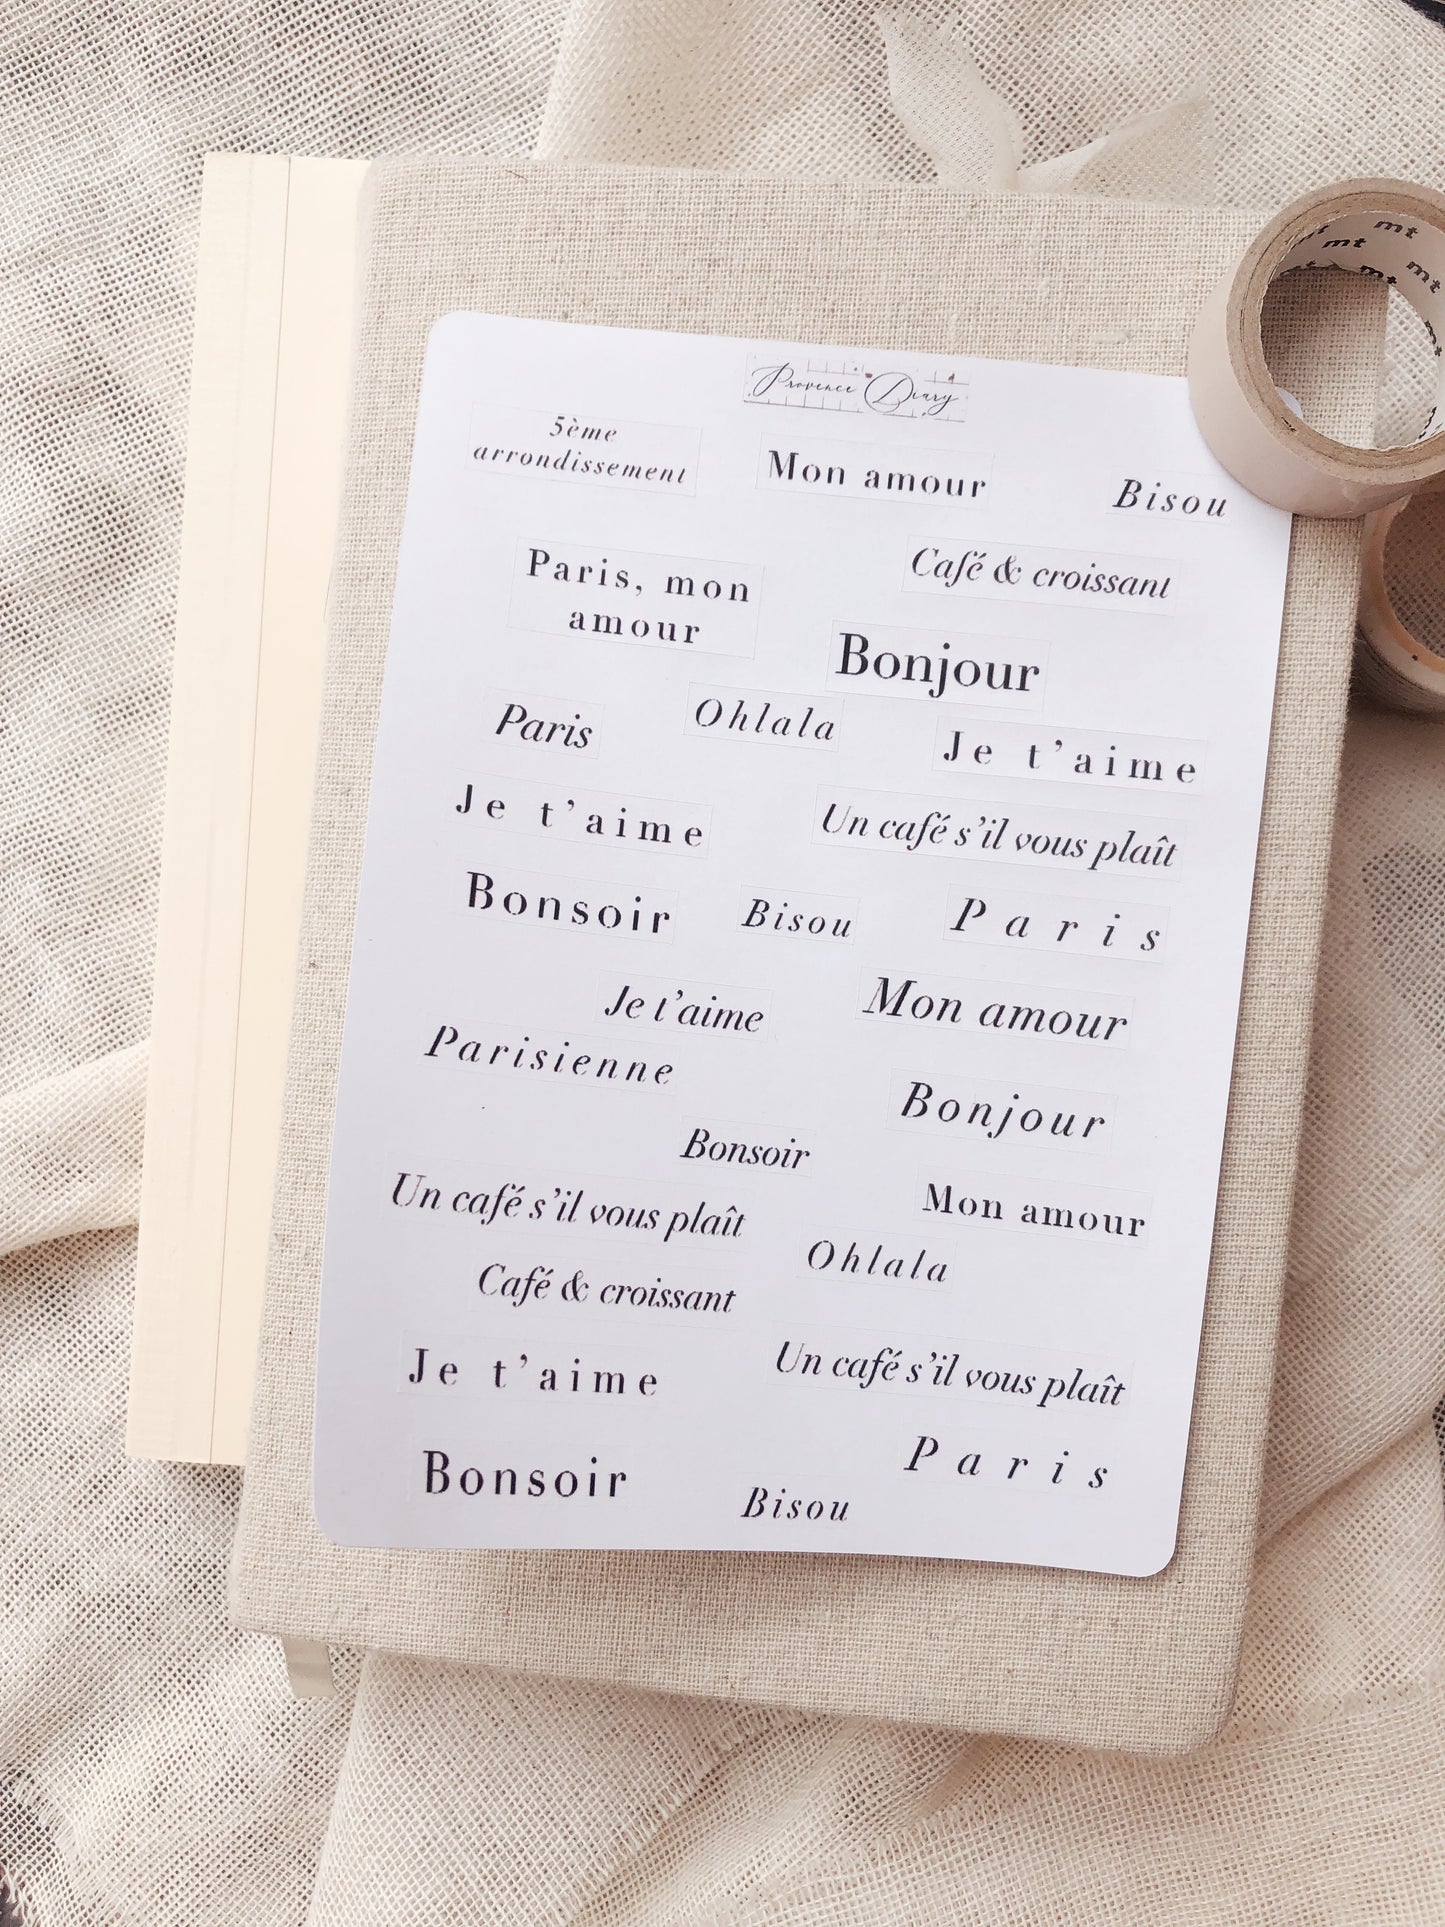 mt mt
mt mt mt
mt
Provence Diary
5ème
arrondissement
Mon amour
Bisou
Paris, mon
amour
Café & croissant
Bonjour
Paris
Ohlala
Je t’aime
Je t’aime
Un café s’il vous plaît
Bonsoir
Bisou
Paris
Je t’aime
Mon amour
Parisienne
Bonjour
Bonsoir
Un café s’il vous plaît
Mon amour
Ohlala
Café & croissant
Je t’aime
Un café s’il vous plaît
Paris
Bonsoir
Bisou